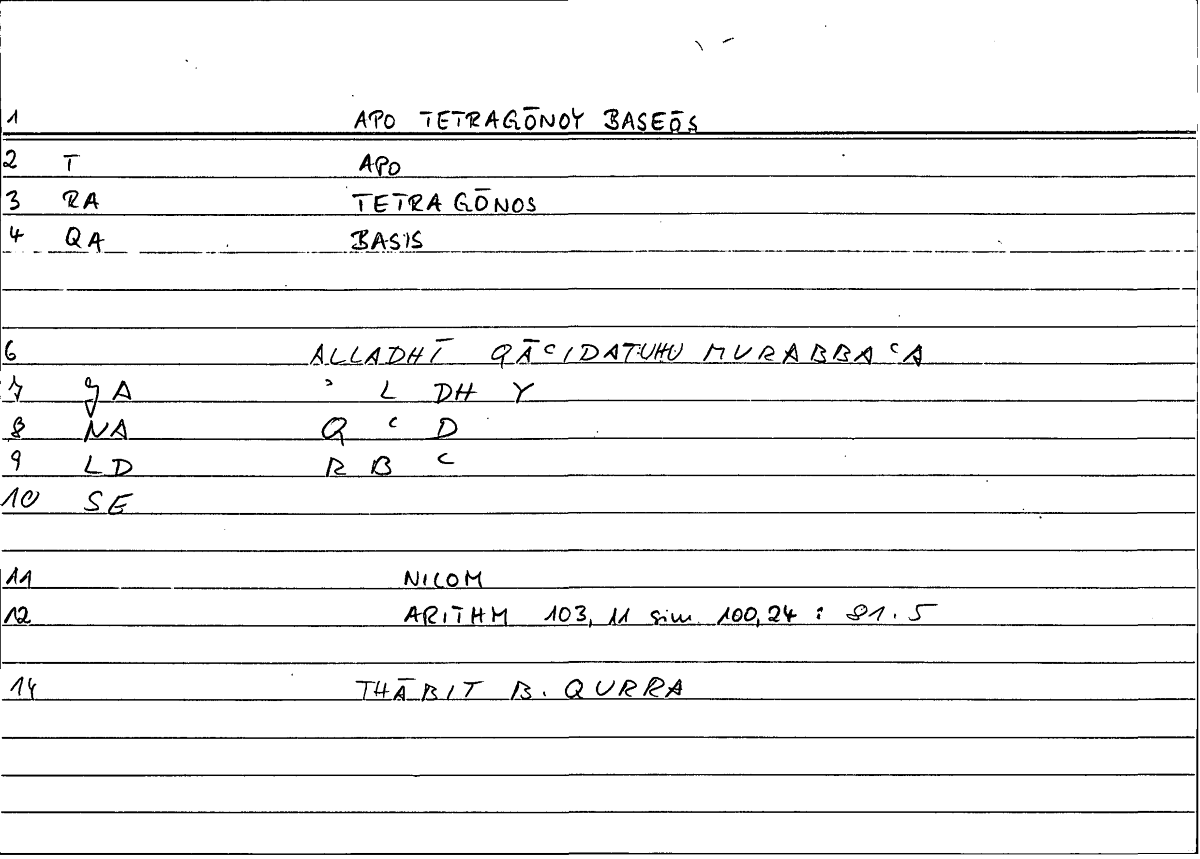 1 APO TETRAGŌNOY BASEŌS
2 T APO
3 RA TETRAGŌNOS
4 QA BASIS
6 ALLADHĪ QĀʿIDATUHU MURABBAʿA
7 JA ʾ L DH Y
8 NA Q ʿ D
9 LD R B ʿ
10 SE
11 NICOM
12 ARITHM 103, 11 sim 100,24 : 81.5
14 THĀBIT B. QURRA